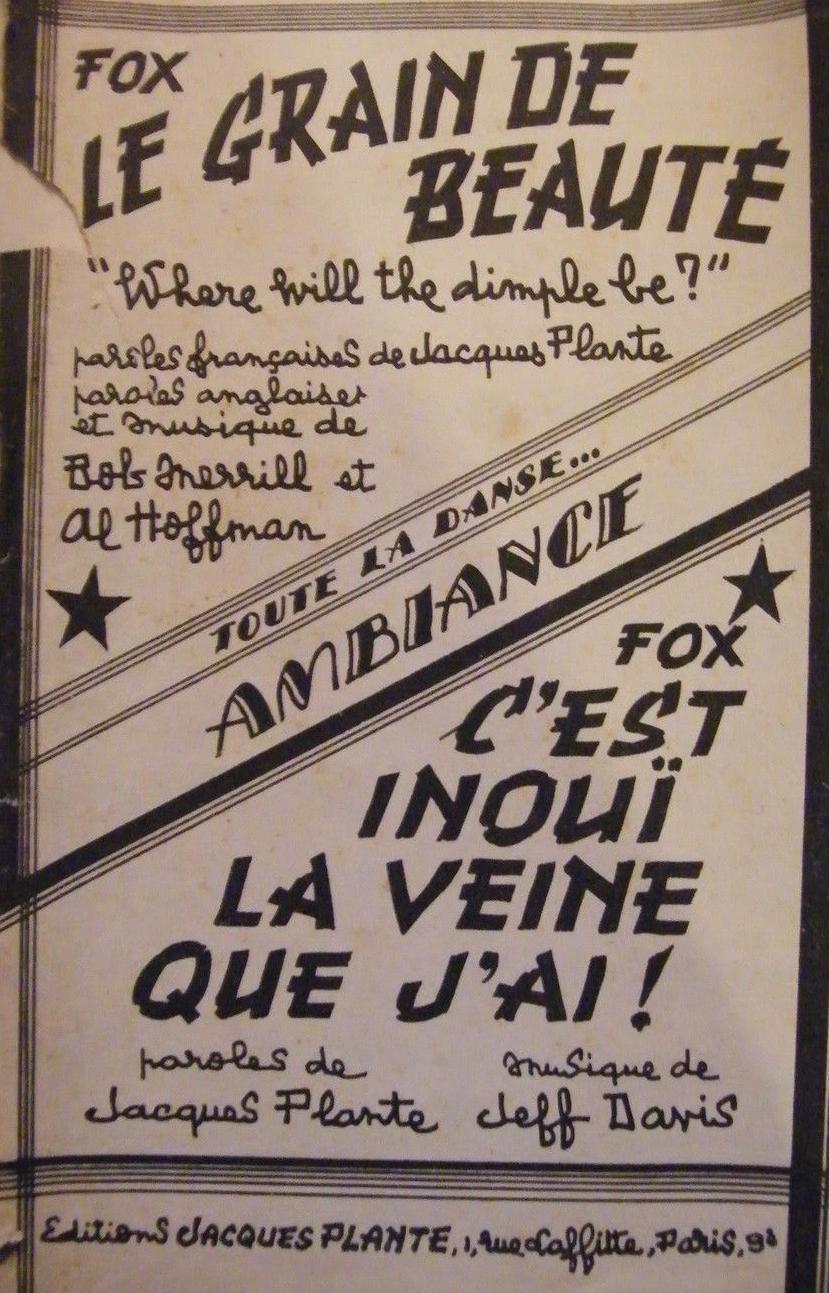 FOX
LE GRAIN DE
BEAUTÉ
"Where will the dimple be?"
paroles françaises de Jacques Plante
paroles anglaises
et musique de
Bob Merrill et
Al Hoffman
TOUTE LA DANSE...
AMBIANCE
FOX
C'EST
INOUÏ
LA VEINE
QUE J'AI!
paroles de
Jacques Plante
musique de
Jeff Davis
Editions JACQUES PLANTE, 1, rue Laffitte, Paris, 9e